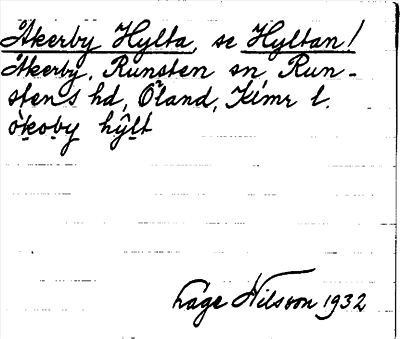 Åkerby Hylta, se Hyltan!
Åkerby, Runsten sn, Run-
stens hd, Öland, Kimr l.
òkoby hŷlt
Lage Nilsson 1932